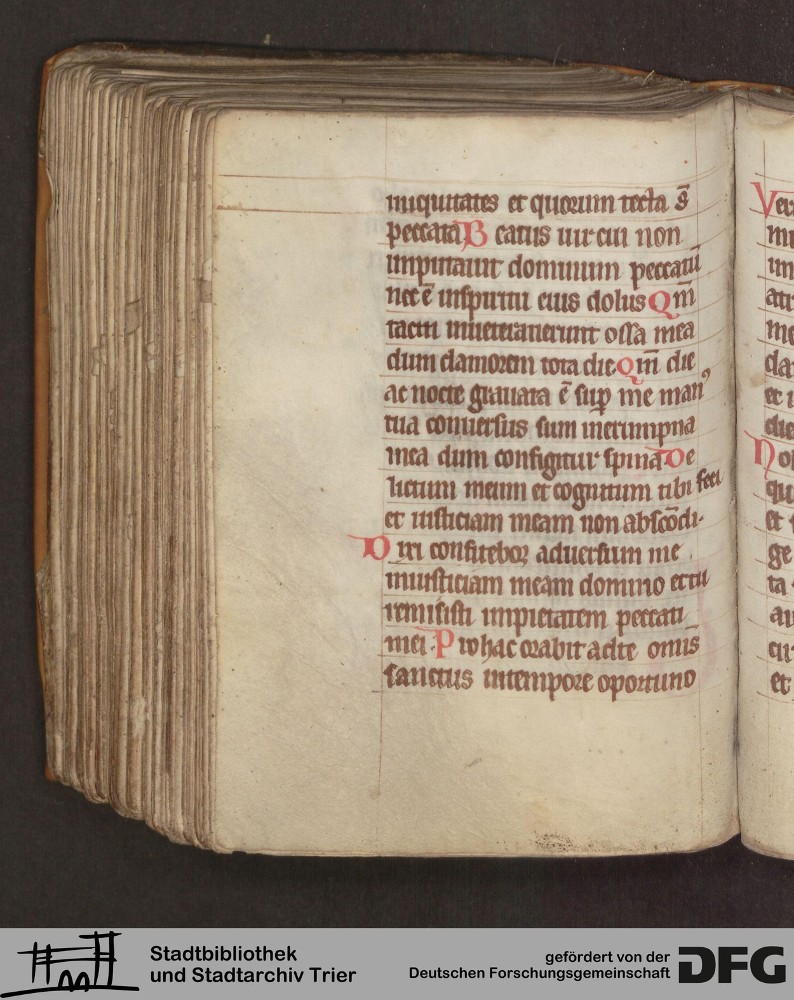 iniquitates et quorum tecta s̄
peccata B eatus uir cui non
imputauit dominum peccatū
nec ē inspiritu eius dolus Qm̄
tacui inueterauerunt ossa mea
dum clamorem tota die Qm̄ die
ac nocte grauata ē sup me manꝰ
tua conuersus sum inerumpna
mea dum configitur spina De
lictum meum et cognitum tibi feci
et iusticiam meam non abscōdi·
D ixi confitebor aduersum me
iniusticiam meam domino et tu
remisisti impietatem peccati
mei· P ro hac orabit adte omīs
sanctus intempore oportuno
Ver
et
die
Nol
qu
et
ge
ta
et
Stadtbibliothek
und Stadtarchiv Trier
gefördert von der
Deutschen Forschungsgemeinschaft
DFG